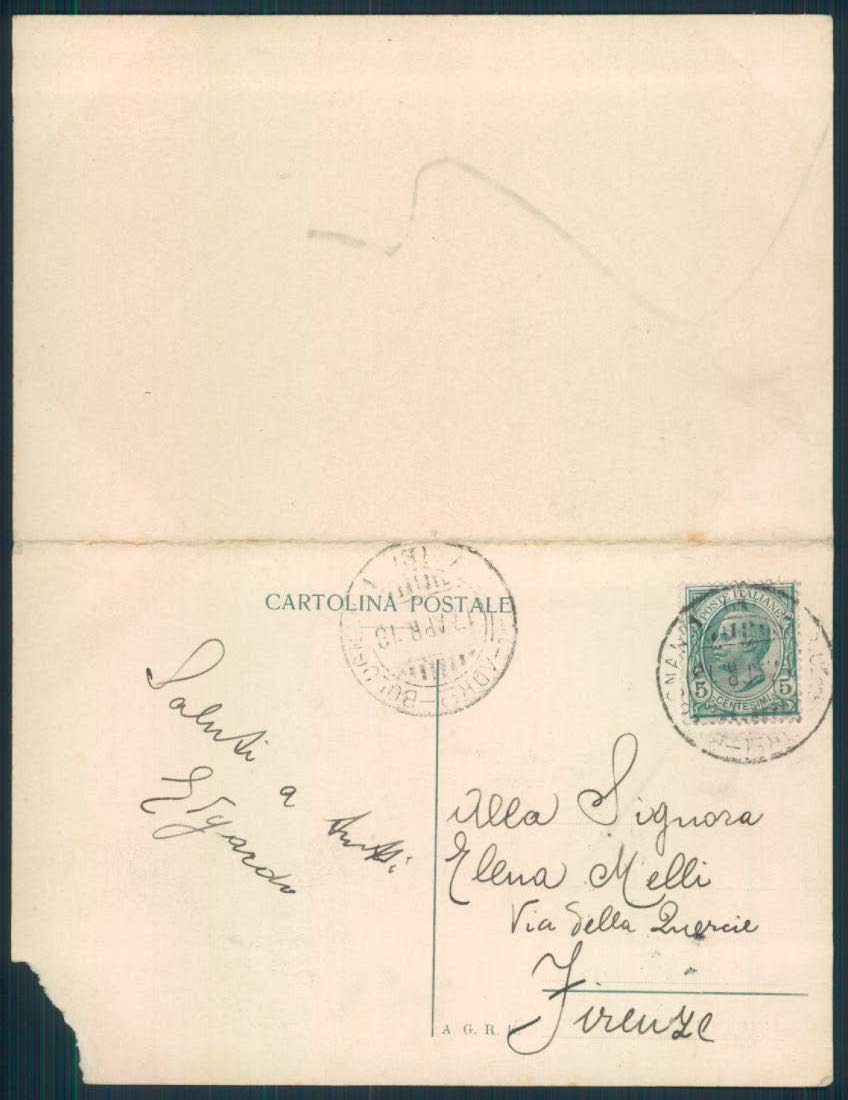 CARTOLINA POSTALE
17 APR 13
POSTE ITALIANE
5 5
CENTESIMI
Saluti a tutti
Edgardo
Alla Signora
Elena Melli
Via della Quercie
Firenze
A G. R.